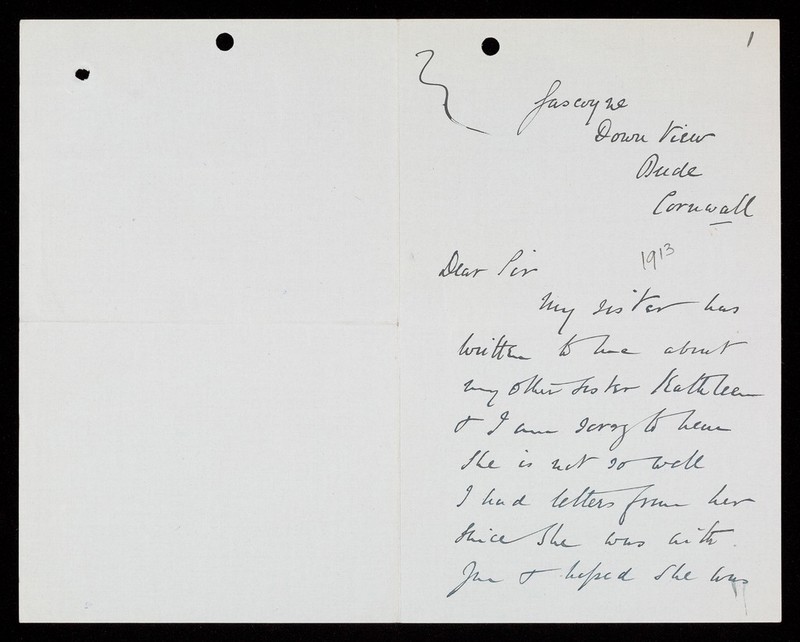 1
Gascoyne
Down View
Bude
Cornwall
1913
Dear Sir
My sister has
written to me about
my other sister Kathleen
& I am sorry to hear
she is not so well
I had letters from her
since she was with
you & hoped she was